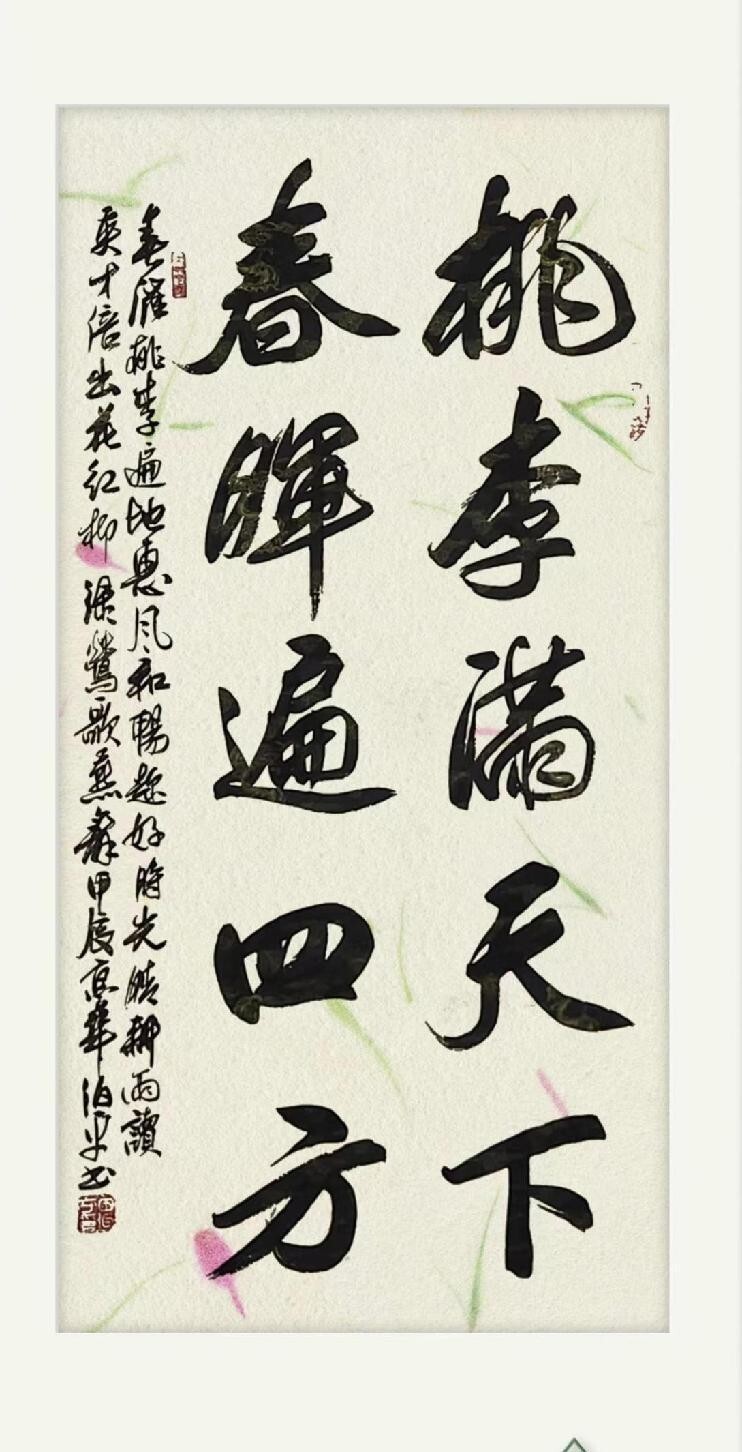 桃李满天下
春晖遍四方
春催桃李遍地惠风和畅趁好时光晴耕雨讀
英才倍出花红柳绿鶯歌燕舞甲辰京華伯平书